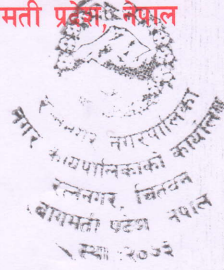 मती प्रदेश, नेपाल
रत्ननगर नगरपालिका
नगर कार्यपालिकाको कार्यालय
रत्ननगर, चितवन
बागमती प्रदेश नेपाल
स्था २०५३